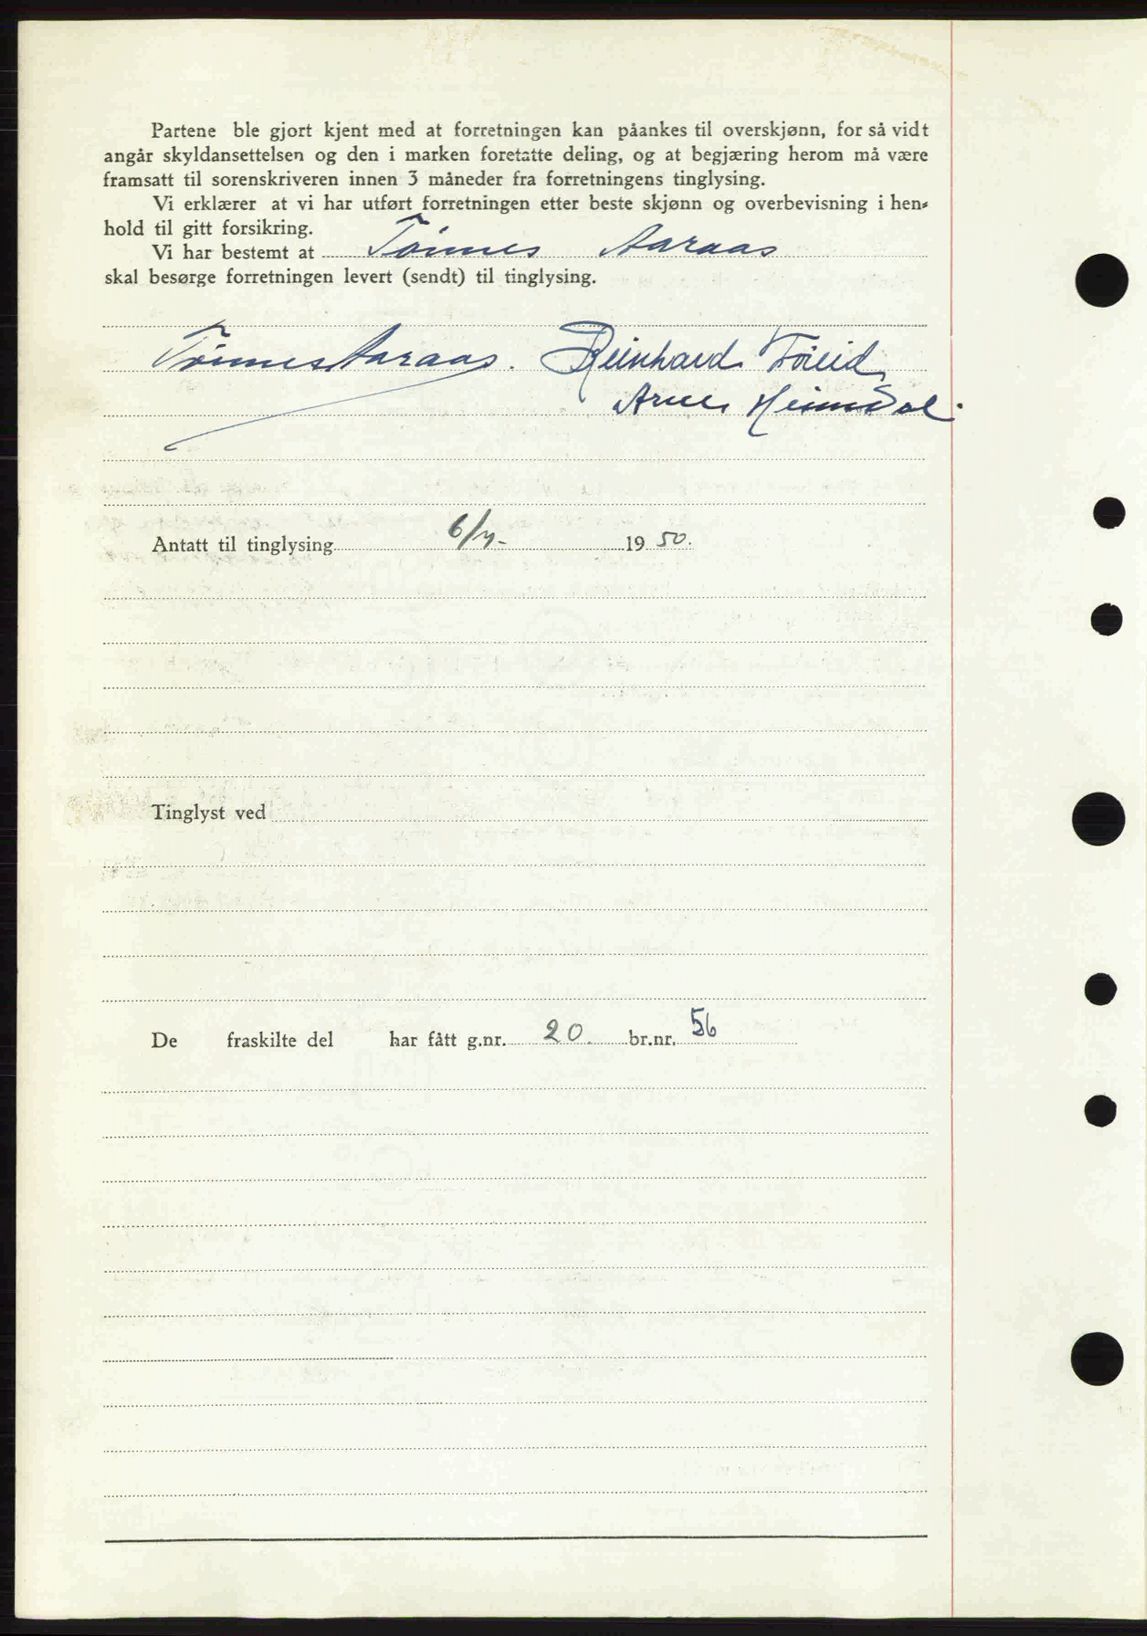 Partene ble gjort kjent med at forretningen kan påankes til overskjønn, for så vidt
angår skyldansettelsen og den i marken foretatte deling, og at begjæring herom må være
framsatt til sorenskriveren innen 3 måneder fra forretningens tinglysing.
Vi erklærer at vi har utført forretningen etter beste skjønn og overbevisning i hen-
hold til gitt forsikring.
Vi har bestemt at Tönnes Aaraas
skal besørge forretningen levert (sendt) til tinglysing.
Tönnes Aaraas. Reinhard
Arne Heimdal.
Antatt til tinglysing 6/4- 1950.
Tinglyst ved
De fraskilte del har fått g.nr. 20. br.nr. 56